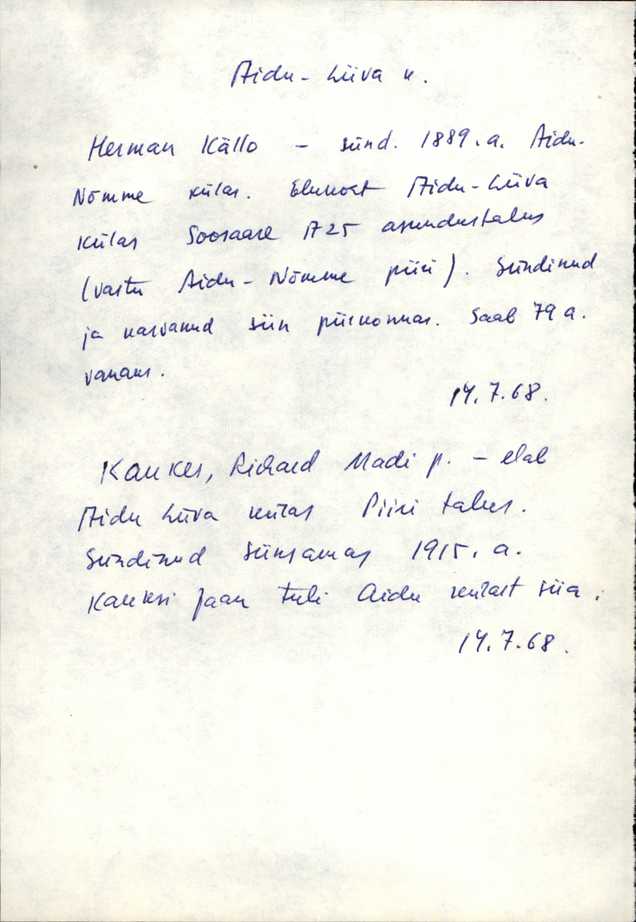 Aidu-Liiva k.
Herman Källo - sünd. 1889.a. Aidu-
Nõmme külas. Elukoht Aidu-Liiva
külas Soosaare A25 asundustalus
(vastu Aidu-Nõmme piiri). Sündinud
ja kasvanud siin piirkonnas. Saab 79 a.
vanaks.
14.7.68.
Kaukes, Richard Madi p. - elab
Aidu Liiva külas Piiri talus.
Sündinud siinsamas 1915. a.
Kauksi Jaan tuli Aidu külast siia.
14.7.68.